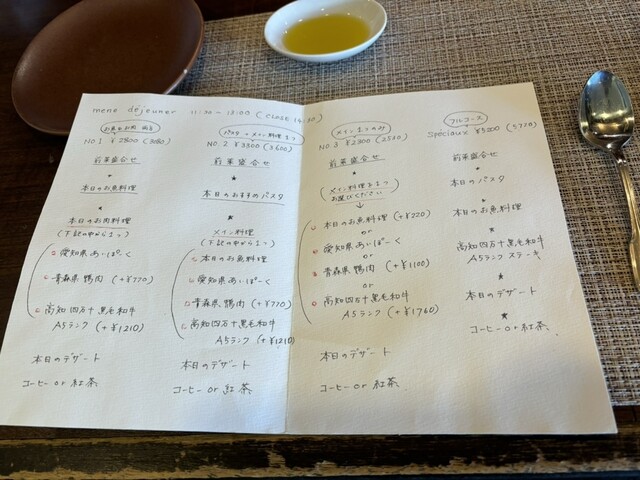 menu déjeuner 11:30 - 13:00 (CLOSE 14:30)
お魚もお肉も
NO 1 ¥2800 (3080)
前菜盛合せ
★
本日のお魚料理
★
本日のお肉料理
(下記の中から1つ)
愛知県あいぽーく
青森県鴨肉 (+¥770)
高知四万十黒毛和牛
A5ランク (+¥1210)
本日のデザート
コーヒー or 紅茶
パスタ・メイン料理1つ
NO. 2 ¥3300 (3600)
前菜盛合せ
★
本日のおすすめパスタ
★
メイン料理
(下記の中から1つ)
本日のお魚料理
愛知県あいぽーく
青森県鴨肉 (+¥770)
高知四万十黒毛和牛
A5ランク (+¥1210)
本日のデザート
コーヒー or 紅茶
メイン1つのみ
NO. 3 ¥2300 (2530)
前菜盛合せ
★
メイン料理を1つ
お選びください
↓
本日のお魚料理 (+¥220)
or
愛知県あいぽーく
or
青森県鴨肉 (+¥1100)
or
高知四万十黒毛和牛
A5ランク (+¥1760)
本日のデザート
コーヒー or 紅茶
フルコース
Spéciaux ¥5200 (5720)
前菜盛合せ
★
本日のパスタ
★
本日のお魚料理
★
高知四万十黒毛和牛
A5ランク ステーキ
★
本日のデザート
★
コーヒー or 紅茶